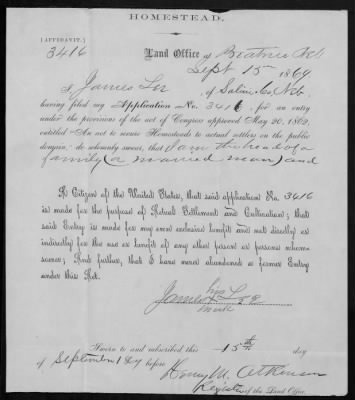 HOMESTEAD.
[AFFIDAVIT.]
3416
Land Office of Beatrice Neb
Sept 15 1869
I James Lee, of Saline Co Neb,
having filed my Application No. 3416, for an entry
under the provisions of the act of Congress approved May 20, 1862,
entitled "An act to secure Homesteads to actual settlers on the public
domain," do solemnly swear, that I am the head of a
family (or a married man) and
A Citizen of the United States, that said application No. 3416
is made for the purpose of Actual Settlement and Cultivation; that
said Entry is made for my own exclusive benefit and not directly or
indirectly for the use or benefit of any other person or persons whom-
soever; And further, that I have never abandoned a former Entry
under this Act.
his
James X Lee
mark
Sworn to and subscribed this 15th day
of September 1869 before
Henry M. Atkinson
Register of the Land Office.